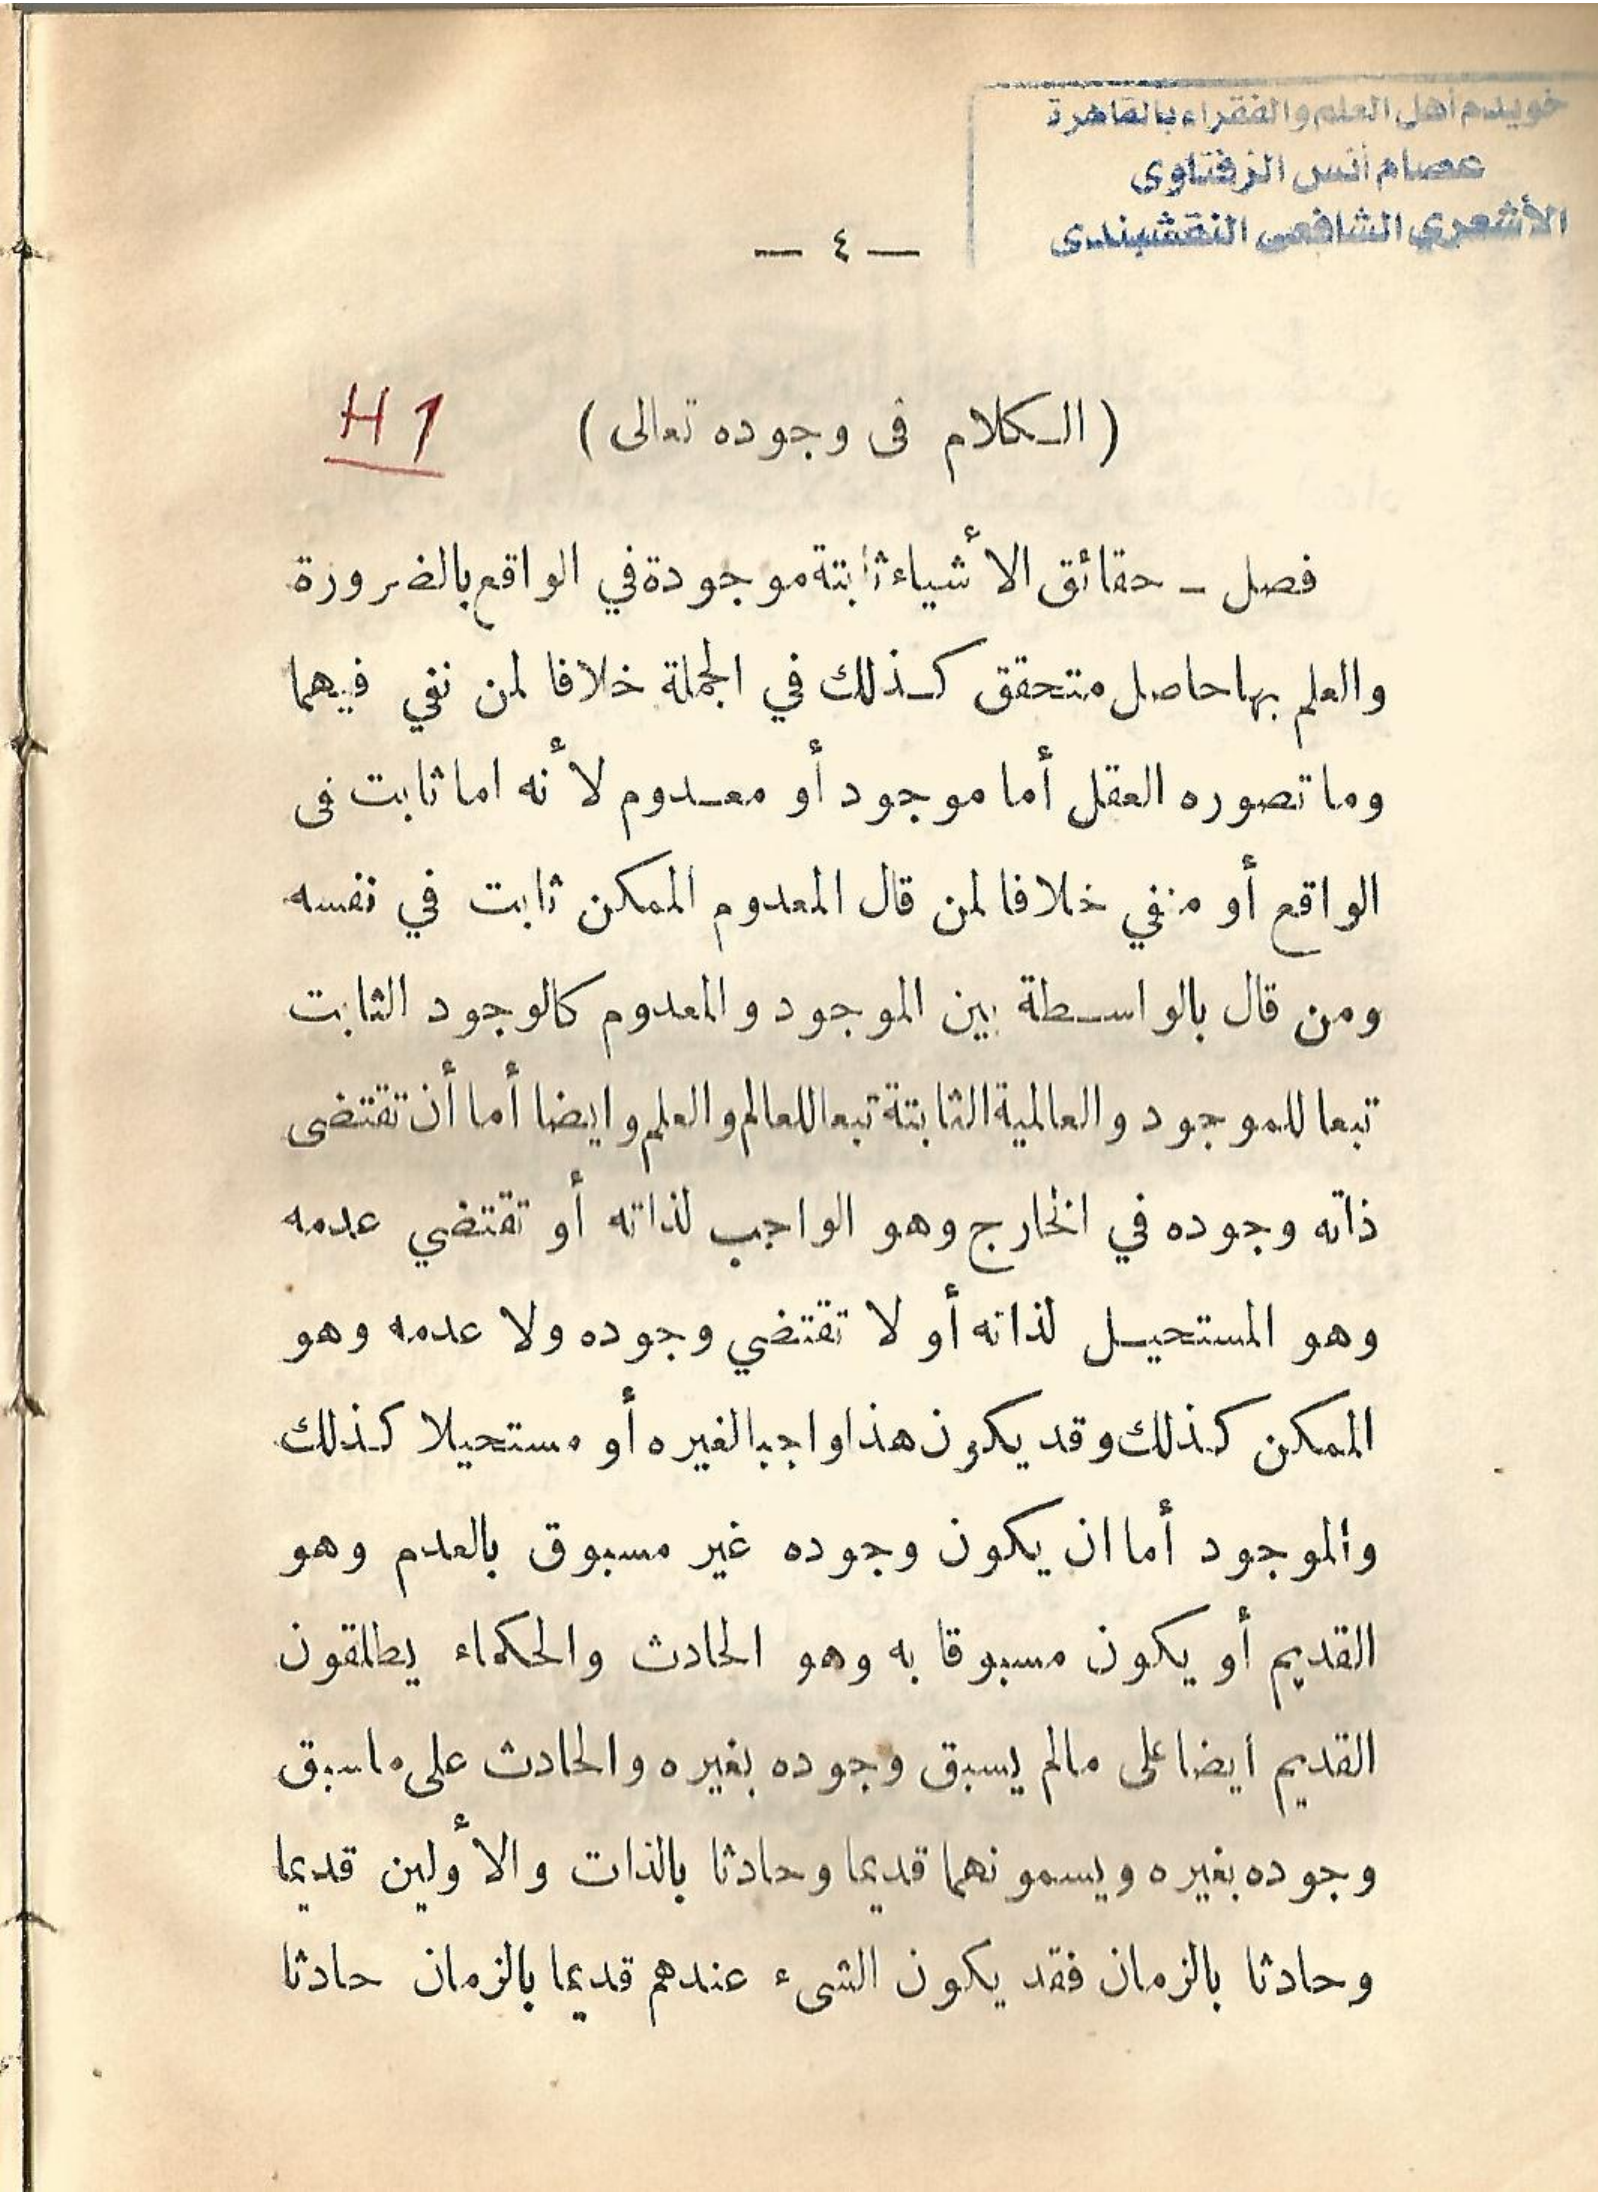 خويدم أهل العلم والفقراء بالقاهرة
عصام أنس الزفتاوى
الأشعري الشافعى النقشبندى
— ٤ —
( الكلام فى وجوده تعالى )
H 1
فصل – حقائق الأشياء ثابتة موجودة في الواقع بالضرورة
والعلم بها حاصل متحقق كذلك في الجملة خلافا لمن نفي فيهما
وما تصوره العقل أما موجود أو معدوم لأنه اما ثابت فى
الواقع أو منفي خلافا لمن قال المعدوم الممكن ثابت في نفسه
ومن قال بالواسطة بين الموجود والمعدوم كالوجود الثابت
تبعا للموجود والعالمية الثابتة تبعا للعالم والعلم وايضا أما أن تقتضى
ذاته وجوده في الخارج وهو الواجب لذاته أو تقتضي عدمه
وهو المستحيل لذاته أو لا تقتضي وجوده ولا عدمه وهو
الممكن كذلك وقد يكون هذا واجبا لغيره أو مستحيلا كذلك
والموجود أما ان يكون وجوده غير مسبوق بالعدم وهو
القديم أو يكون مسبوقا به وهو الحادث والحكماء يطلقون
القديم ايضا على مالم يسبق وجوده بغيره والحادث على ما سبق
وجوده بغيره ويسمونهما قديما وحادثا بالذات والأولين قديما
وحادثا بالزمان فقد يكون الشىء عندهم قديما بالزمان حادثا